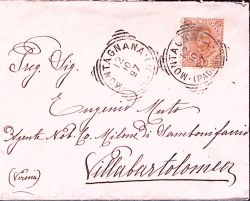 MONTAGNANA
97
MONTAGNANA (PADOVA)
Preg. Sig.
Eugenio Muto
Agente Nob. Co. Milone di Sambonifacio
Villabartolomea
(Verona)